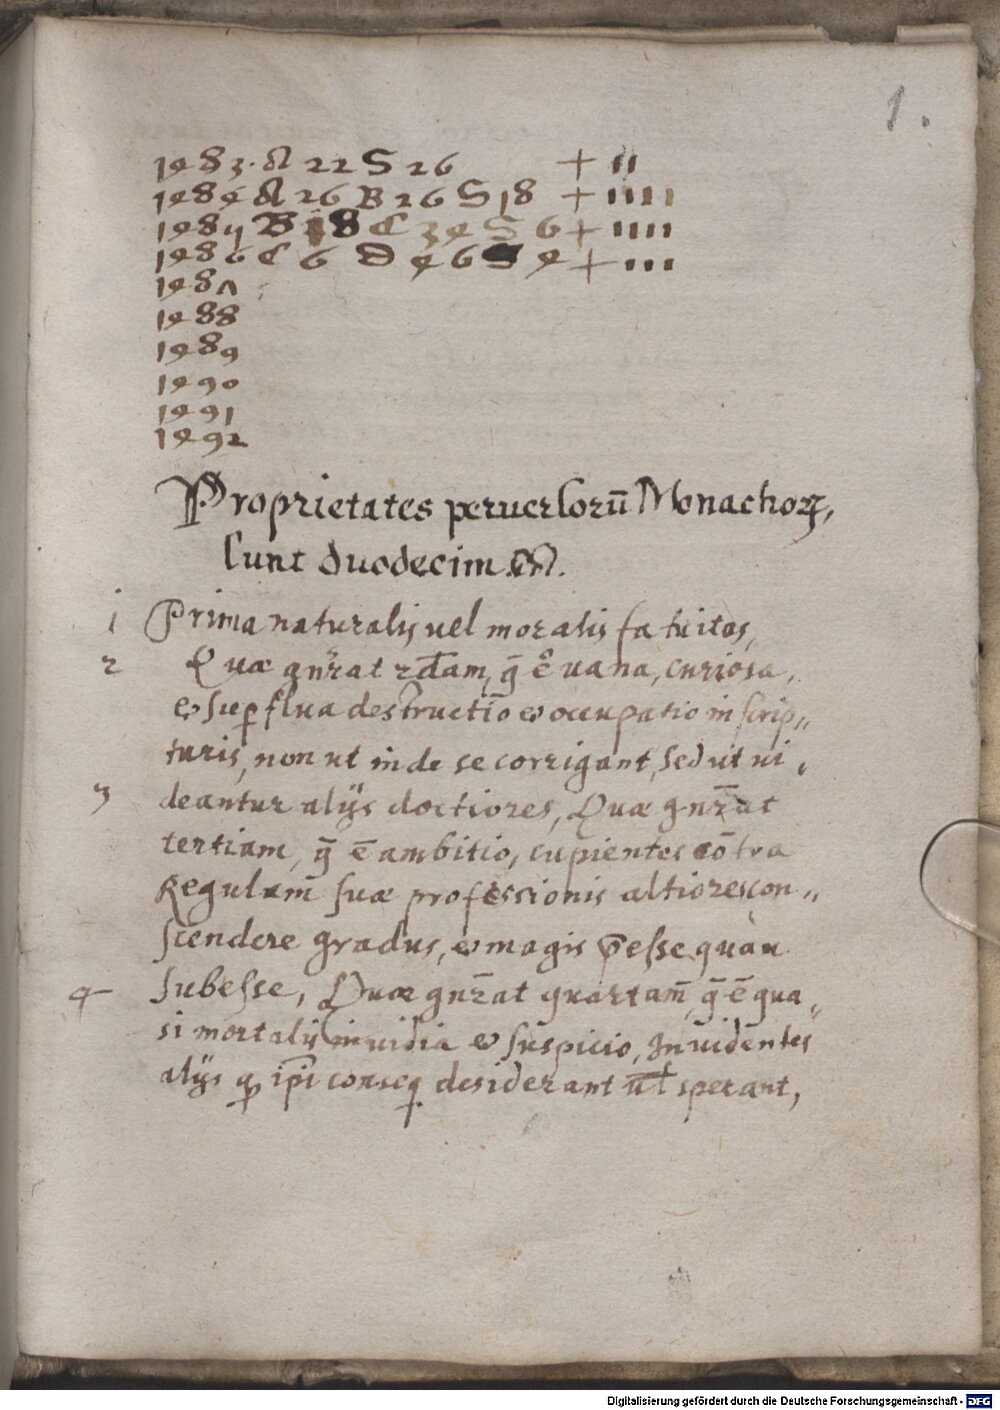 1.
1483. A 22 S 26 + 11
1484 A 26 B 26 S 18 + 1111
1485 B 18 C 34 S 6 + 1111
1486 C 6 D 46 S 4 + 111
1487
1488
1489
1490
1491
1492
Proprietates peruersorū Monachoꝝ,
sunt duodecim
1 Prima naturalis uel moralis fatuitas,
2 Quæ gn̄rat 2dam, q̄ ē uana, curiosa,
& suꝑflua destructio & occupatio in scrip„
turis, non ut inde se corrigant, sed ut ui,
3 deantur alijs doctiores, Quæ gn̄rat
tertiam, q̄ ē ambitio, cupientes cōtra
Regulam suæ professionis altiores con„
scendere gradus, & magis p̄esse quàm
4 subesse, Quæ gn̄rat quartam̄, q̄ ē qua„
si mortalis inuidia & suspicio, Inuidentes
alijs ꝙ ip̄i conseq desiderant ut̄ sperant,
Digitalisierung gefördert durch die Deutsche Forschungsgemeinschaft - DFG